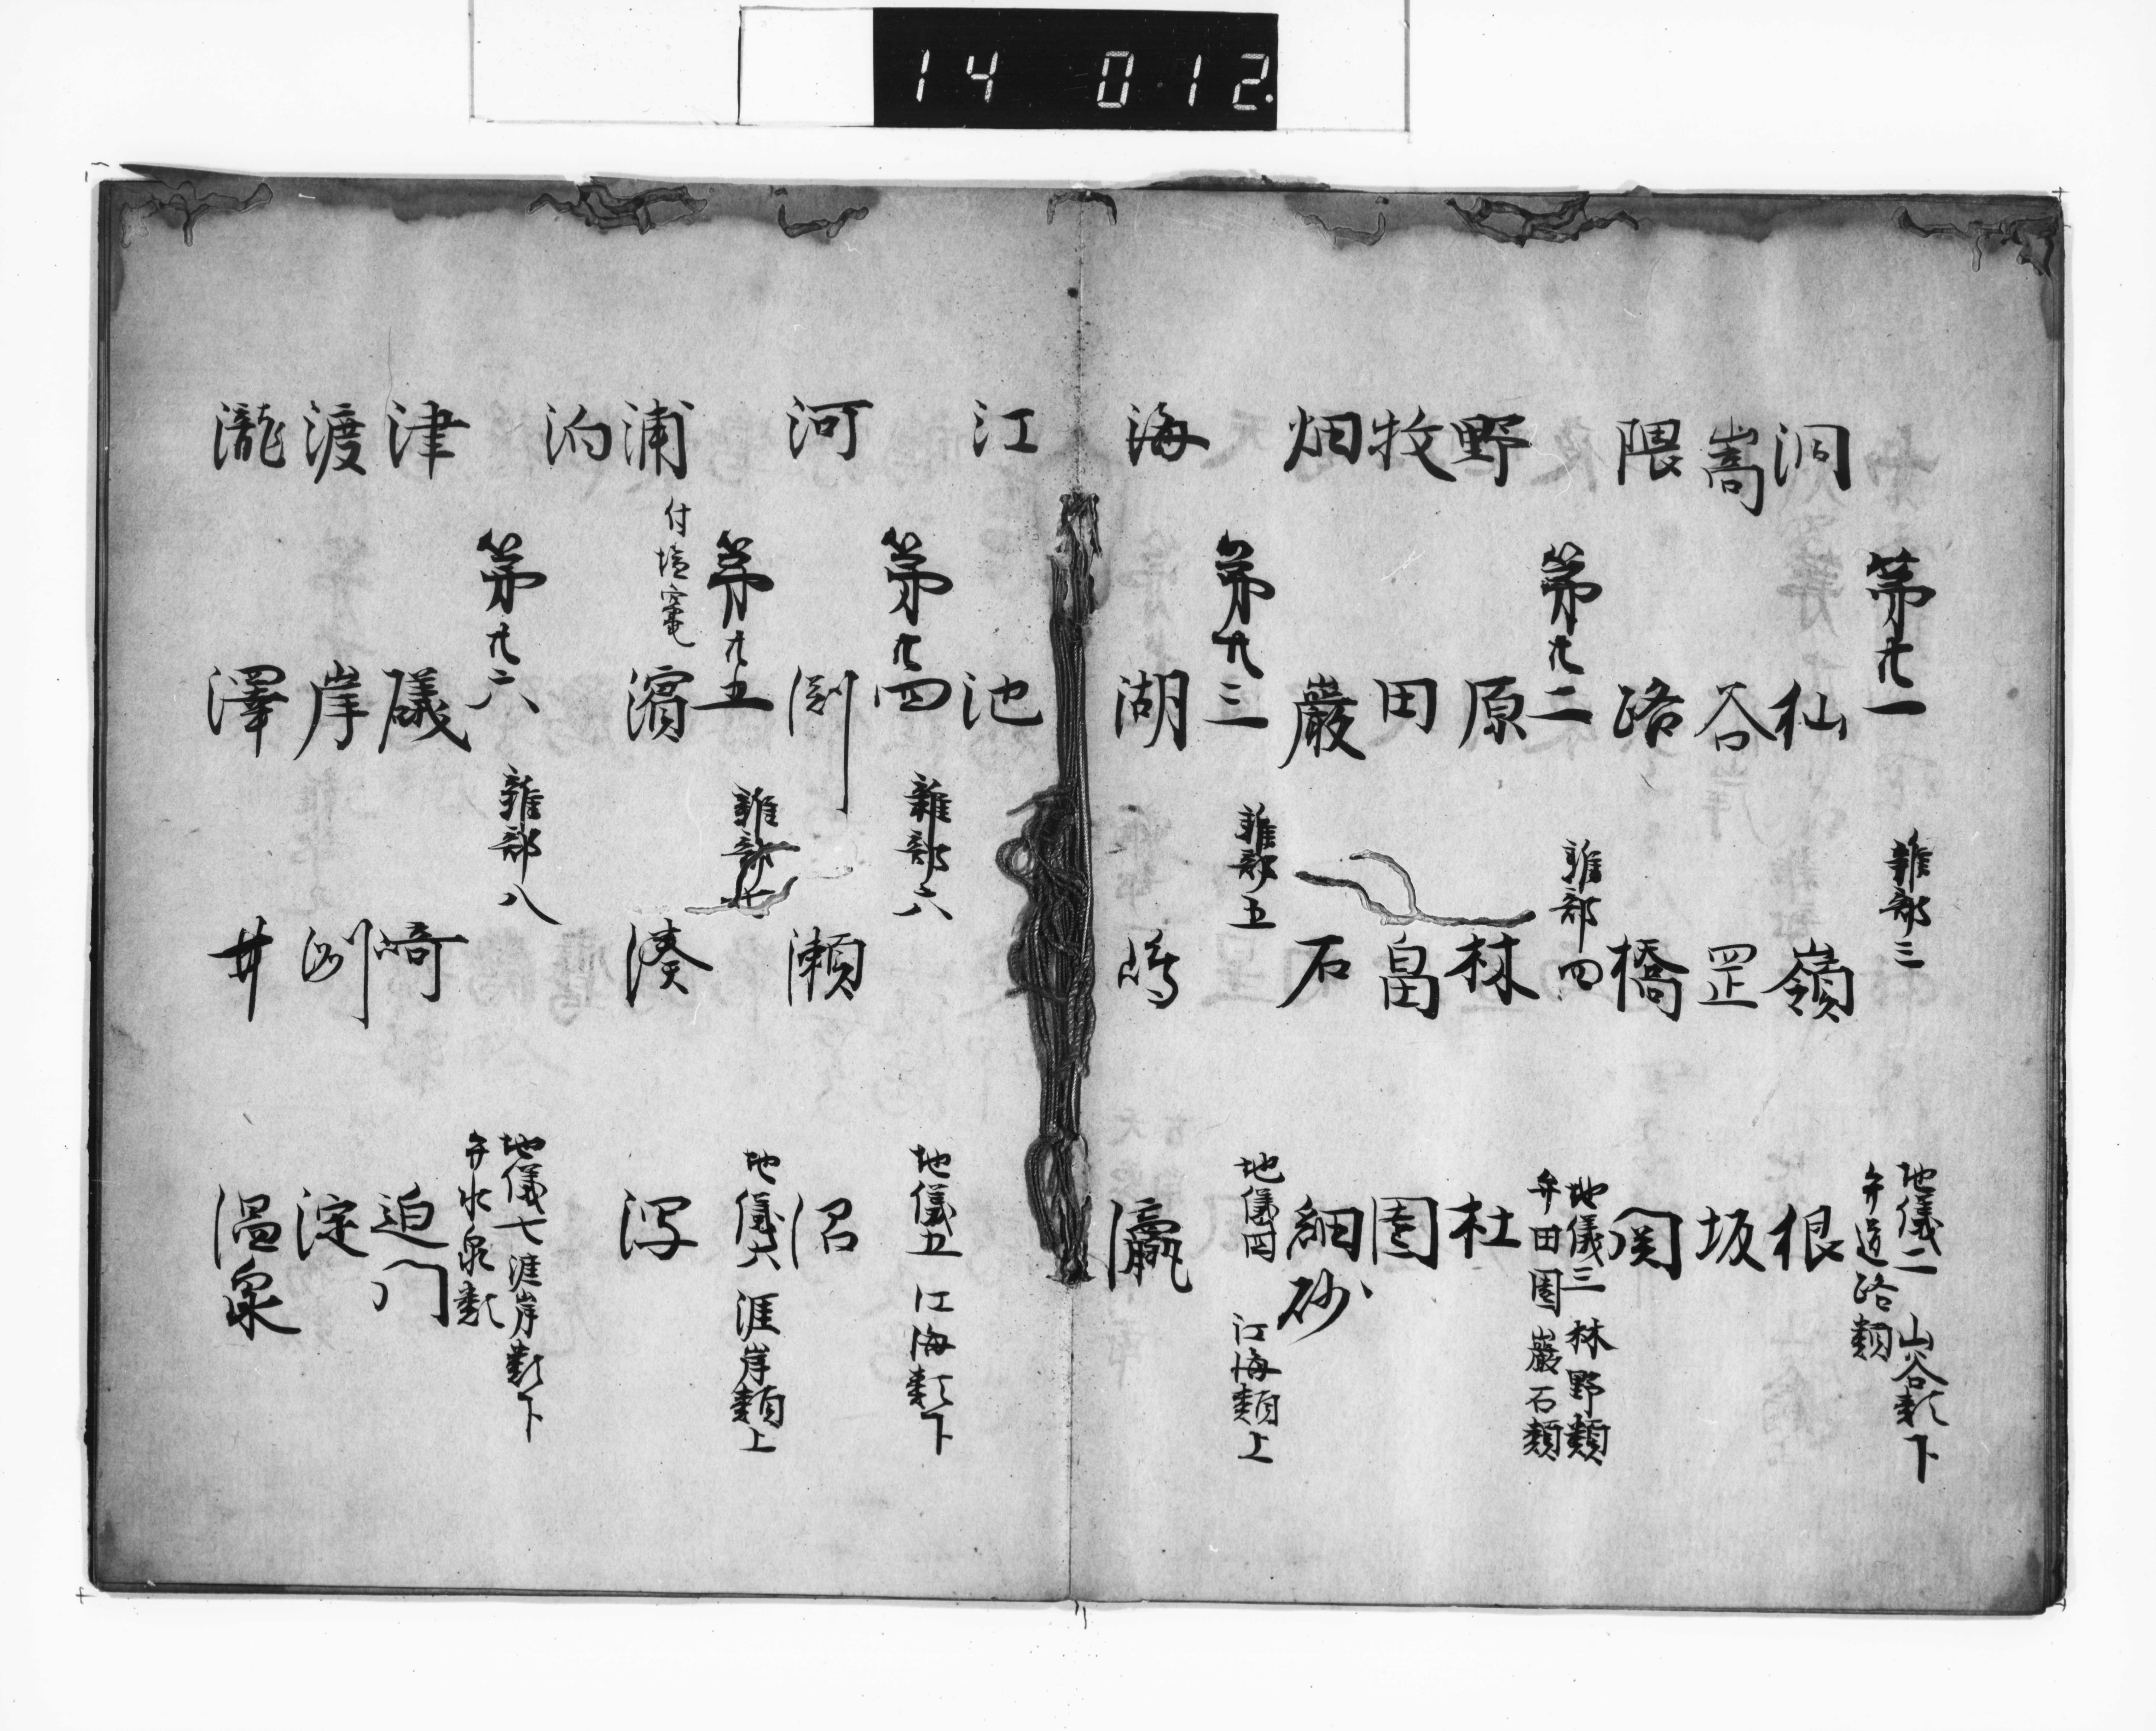 14 012
第廿一 雜部三 地儀二 山谷類下
弁道路類
洞 杣 嶺 根
嵩 谷 罡 坂
隈 路 橋 関
第廿二 雜部四 地儀三 林野類
弁田園 巌石類
野 原 林 杜
牧 田 畠 園
畑 巌 石 細砂
第廿三 雜部五 地儀四 江海類上
海 湖 嶋 瀛
江 池
第廿四 雜部六 地儀五 江海類下
河 渕 瀬 沼
第廿五 雜部七 地儀六 涯岸類上
浦 付塩竃 濱 湊 浮
泊
第廿六 雜部八 地儀七 涯岸類下
弁水泉類
津 礒 崎 迫門
渡 岸 洲 淀
瀧 澤 井 温泉